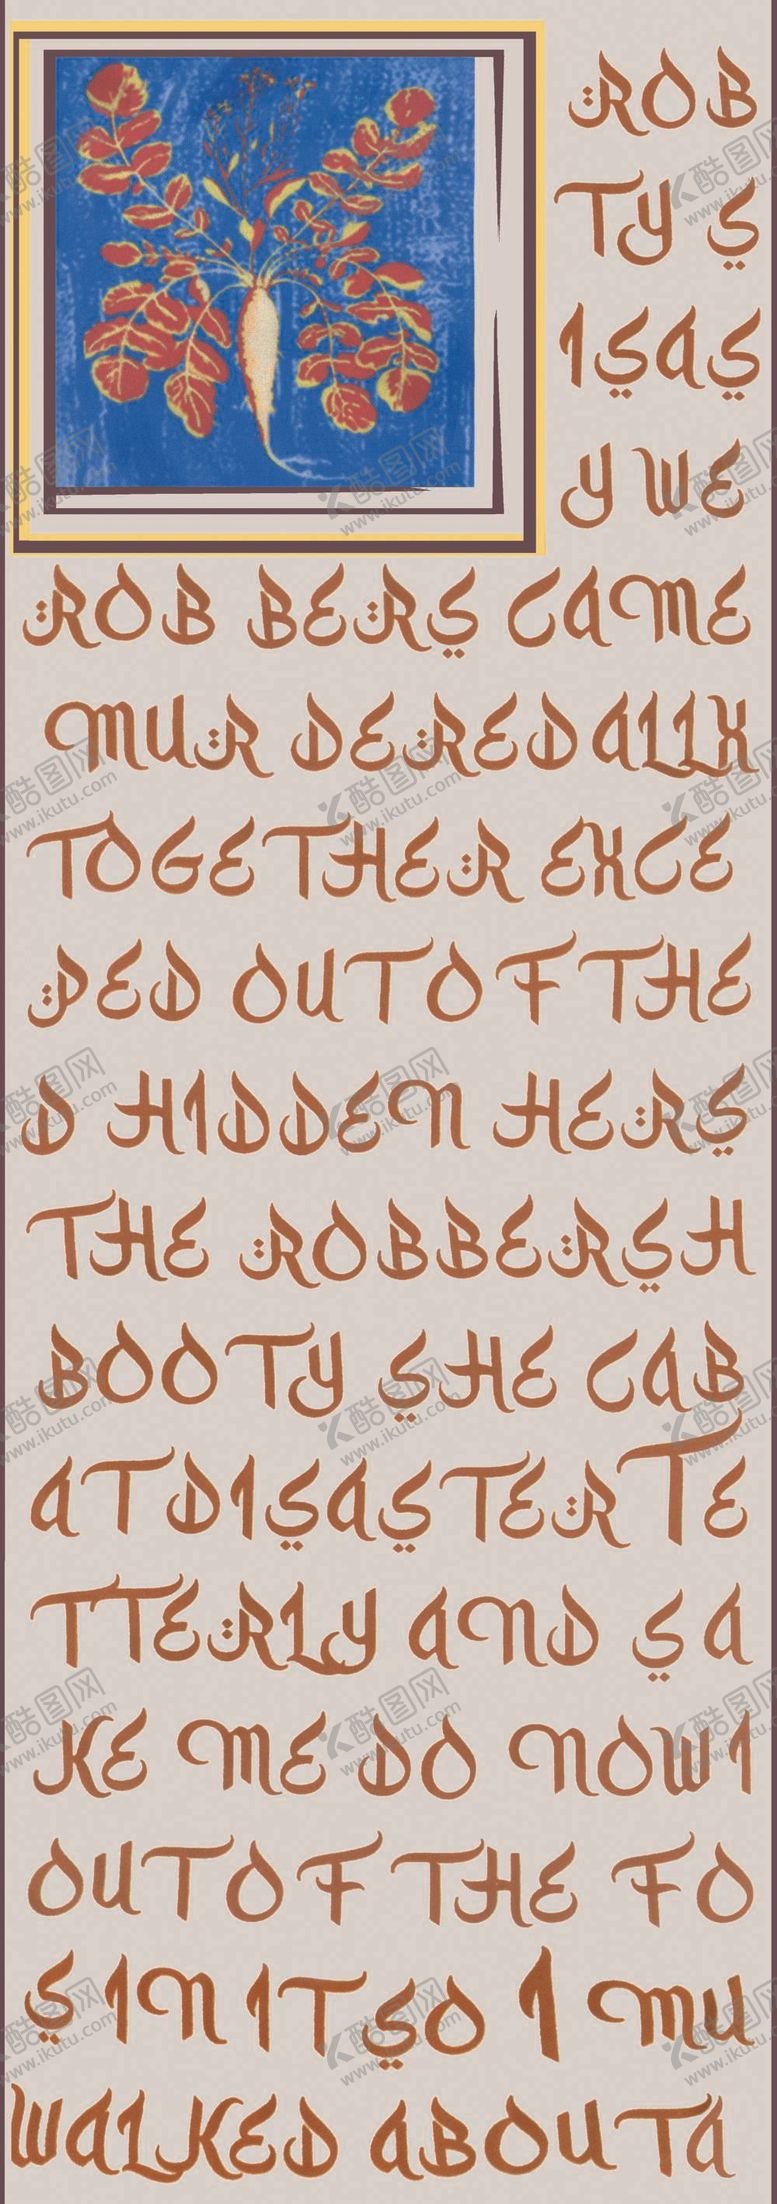 ROB
TY S
ISAS
Y WE
ROB BERS CAME
MUR DERED ALLX
TOGETHER EXCE
PED OUT OF THE
D HIDDEN HERS
THE ROBBERSH
BOOTY SHE CAB
AT DISASTER TE
TTERLY AND SA
KE ME DO NOW I
OUT OF THE FO
S IN IT SO I MU
WALKED ABOUT A
酷图网
www.ikutu.com